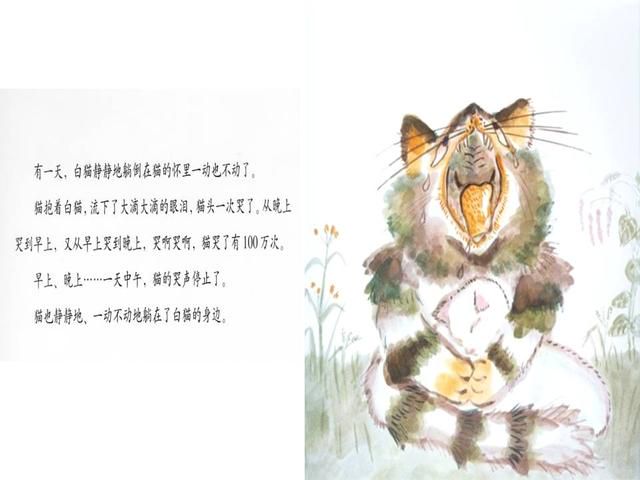 有一天，白猫静静地躺倒在猫的怀里一动也不动了。
猫抱着白猫，流下了大滴大滴的眼泪，猫头一次哭了。从晚上
哭到早上，又从早上哭到晚上，哭啊哭啊，猫哭了有100万次。
早上、晚上……一天中午，猫的哭声停止了。
猫也静静地、一动不动地躺在了白猫的身边。